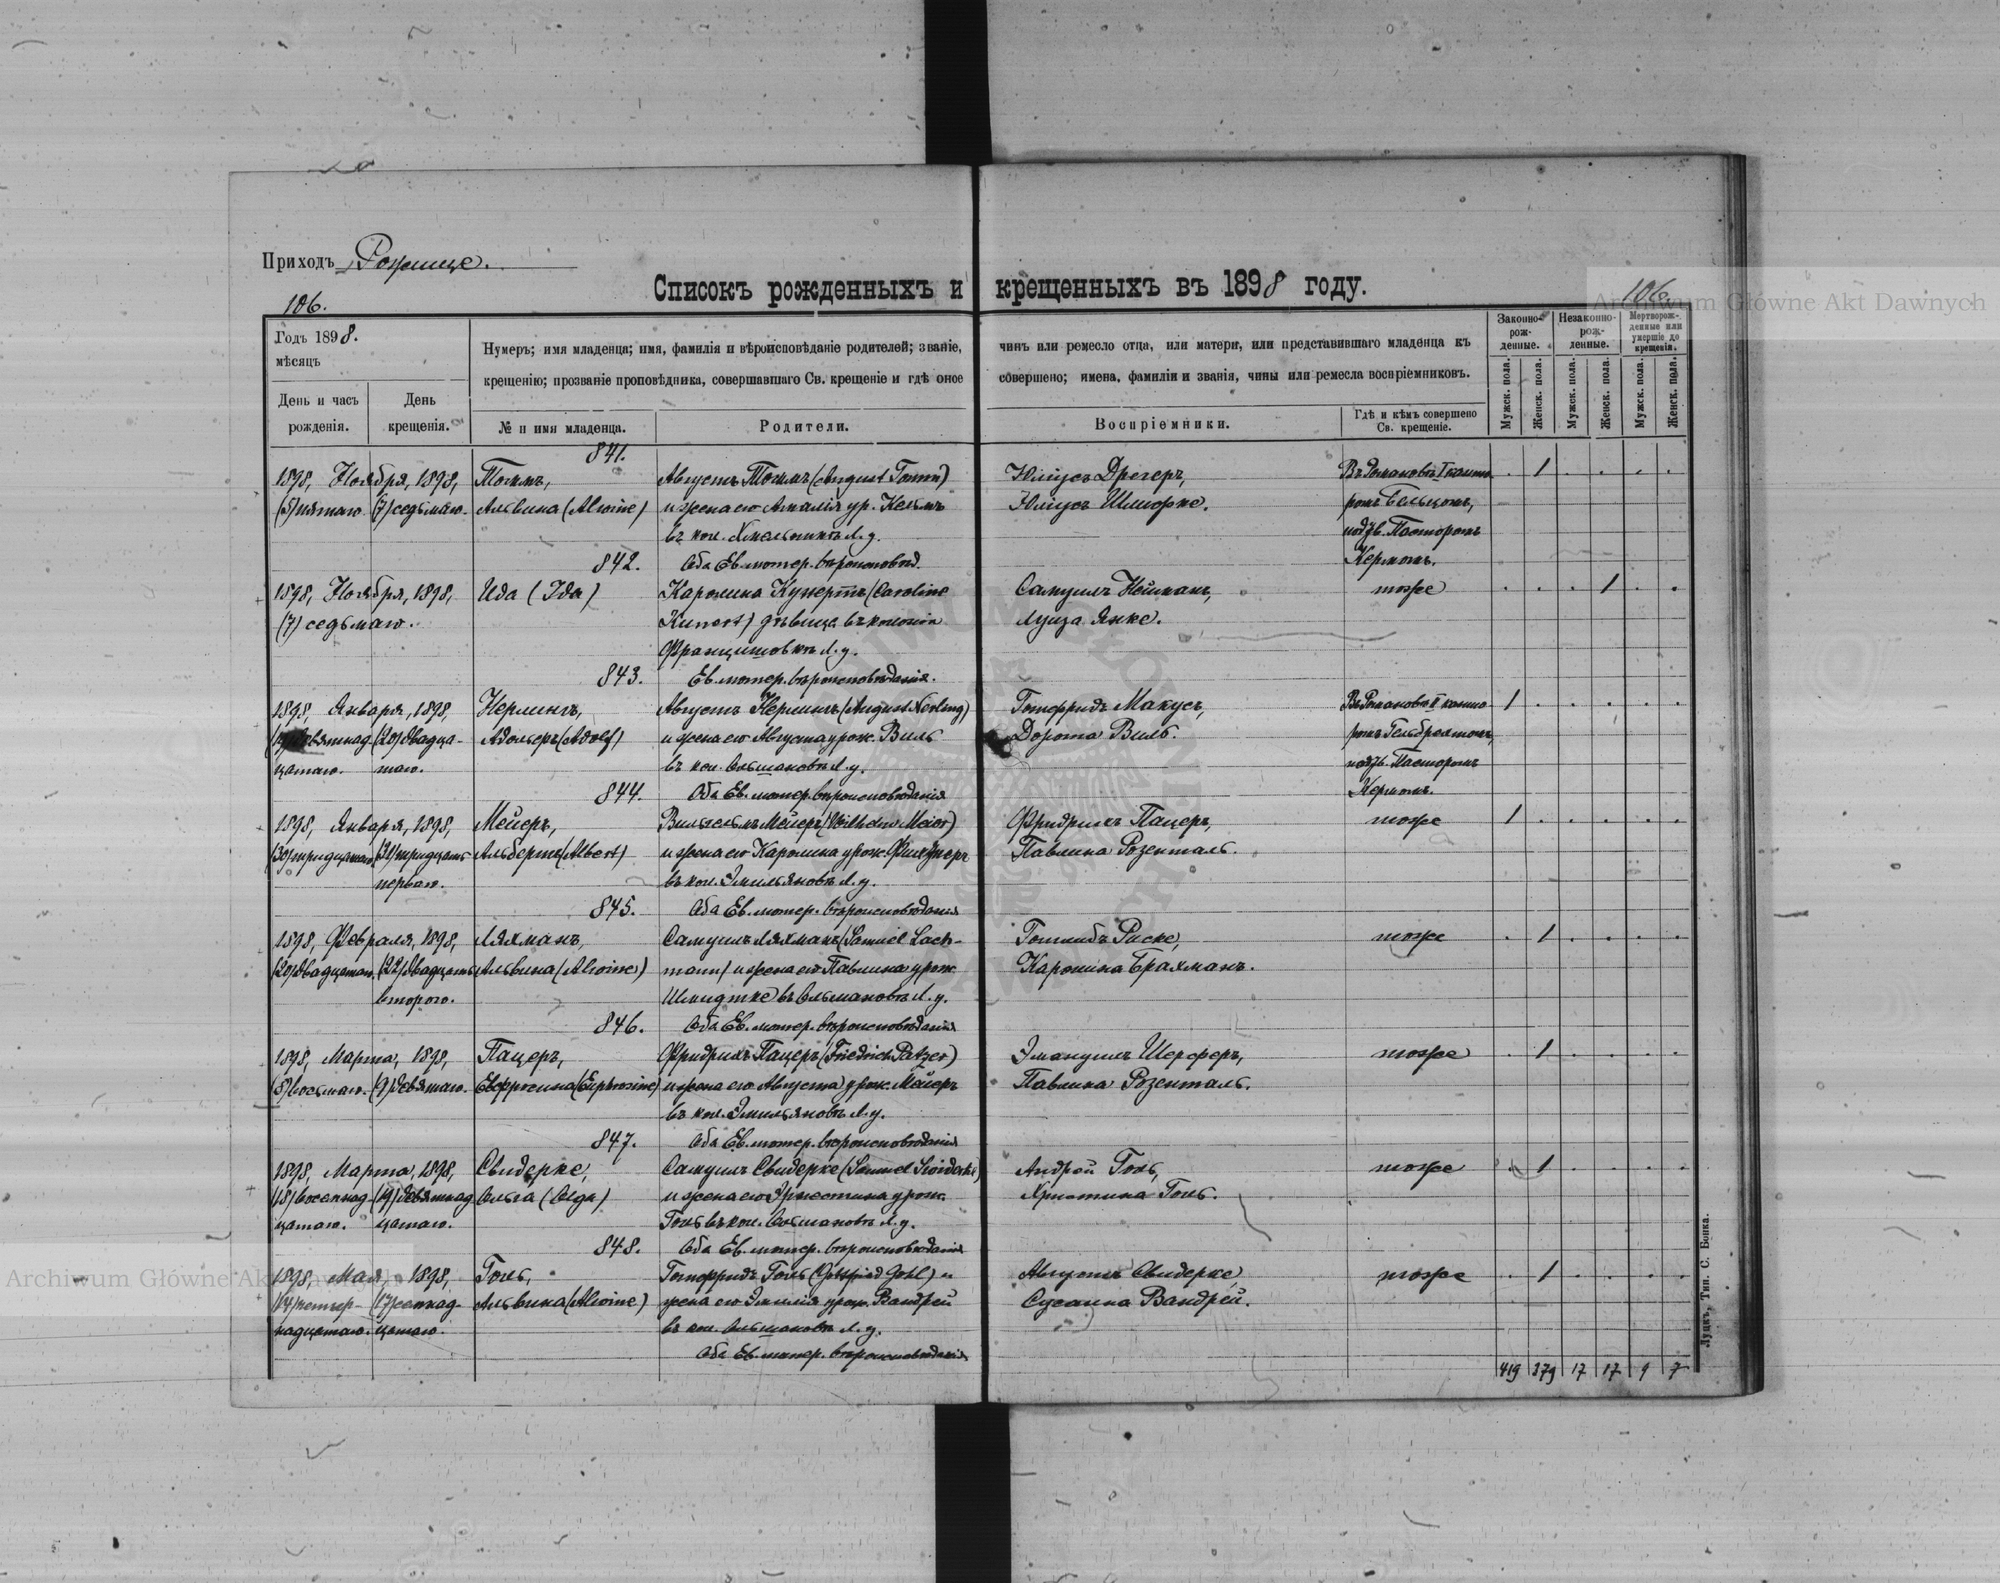 Приходъ Рожище.
Списокъ рожденныхъ и крещенныхъ въ 1898 году.
106.
106.
Archiwum Główne Akt Dawnych
Годъ 1898.
мѣсяцъ
День и часъ рожденія.
День крещенія.
Нумеръ; имя младенца; имя, фамилія и вѣроисповѣданіе родителей; званіе, чинъ или ремесло отца, или матери, или представившаго младенца къ
крещенію; прозваніе проповѣдника, совершавшаго Св. крещеніе и гдѣ оное совершено; имена, фамиліи и званія, чины или ремесла воспріемниковъ.
№ и имя младенца.
Родители.
Воспріемники.
Гдѣ и кѣмъ совершено Св. крещеніе.
Законно-рож-денные.
Незаконно-рож-ленные.
Мертворож-денные или умершіе до крещенія.
Мужск. пола.
Женск. пола.
Мужск. пола.
Женск. пола.
Мужск. пола.
Женск. пола.
841.
1898, Ноября, 1898,
(5) пятаго (7) седьмаго.
Томмъ,
Альвина (Alwine)
Августъ Томмъ (August Tomm)
и жена его Амалія ур.
въ кол. Л.у.
Оба Ев. лютер. вѣроисповѣд.
Юліусъ Дрегеръ,
Юліусъ
Въ Романовѣ I канто
ромъ
подтв. Пасторомъ
Кермомъ.
842.
1898, Ноября, 1898,
(7) седьмаго.
Ида (Ida)
Каролина Кунертъ (Caroline
Kunert) дѣвица въ колоніи
Францишовкѣ Л.у.
Ев. лютер. вѣроисповѣданія.
Самуилъ Нейманъ,
Луиза Янке.
тоже
843.
1898, Января, 1898,
(20) двадца-
цатаго. таго.
Нерлингъ,
Адольфъ (Adolf)
Августъ Нерлингъ (August Nerling)
и жена его Августа урож. Виль
въ кол. Ольшановкѣ Л.у.
Оба Ев. лютер. вѣроисповѣданія
Готфридъ Макусъ,
Дорота Виль.
Въ Романовѣ II канто
ромъ
подтв. Пасторомъ
Кермомъ.
844.
1898, Января, 1898,
(30) тридцатаго (31) тридцать
перваго.
Мейеръ,
Альбертъ (Albert)
Вильгельмъ Мейеръ (Wilhelm Meier)
и жена его Каролина урож.
въ кол. Эмильяновкѣ Л.у.
Оба Ев. лютер. вѣроисповѣданія
Фридрихъ Пацеръ,
Павлина Розенталь.
тоже
845.
1898, Февраля, 1898,
(20) двадцатаго. (22) двадцать
втораго.
Ляхманъ,
Альвина (Alwine)
Самуилъ Ляхманъ (Samuel Lach-
mann) и жена его Павлина урож.
Шмидтке въ Ольшановкѣ Л.у.
Оба Ев. лютер. вѣроисповѣданія
Готлибъ Риске,
Каролина Брахманъ.
тоже
846.
1898, Марта, 1898,
(8) восьмаго. (9) девятаго.
Пацеръ,
Евфросина (Euphrosine)
Фридрихъ Пацеръ (Friedrich Patzer)
и жена его Августа урож. Мейеръ
въ кол. Эмильяновкѣ Л.у.
Оба Ев. лютер. вѣроисповѣданія
Эмануилъ Шерферъ,
Павлина Розенталь.
тоже
847.
1898, Марта, 1898,
(18) восемнад- (19) девятнад
цатаго. цатаго.
Свидерке,
Ольга (Olga)
Самуилъ Свидерке (Samuel Swiderke)
и жена его Эрнестина урож.
Голь въ кол. Ольшановкѣ Л.у.
Оба Ев. лютер. вѣроисповѣданія
Андрей Голь,
Христина Голь.
тоже
848.
1898, Мая, 1898,
(14) четыр- (17) семнад-
надцатаго. цатаго.
Голь,
Альвина (Alwine)
Готфридъ Голь (Gottfried Gohl) и
жена его Эмилія урож. Вандрей
въ кол. Ольшановкѣ Л.у.
Оба Ев. лютер. вѣроисповѣданія
Августъ Свидерке,
Сусанна Вандрей.
тоже
419 379 17 17 9 7
Луцкъ, Тип. С. Бонка.
Archiwum Główne Akt Dawnych